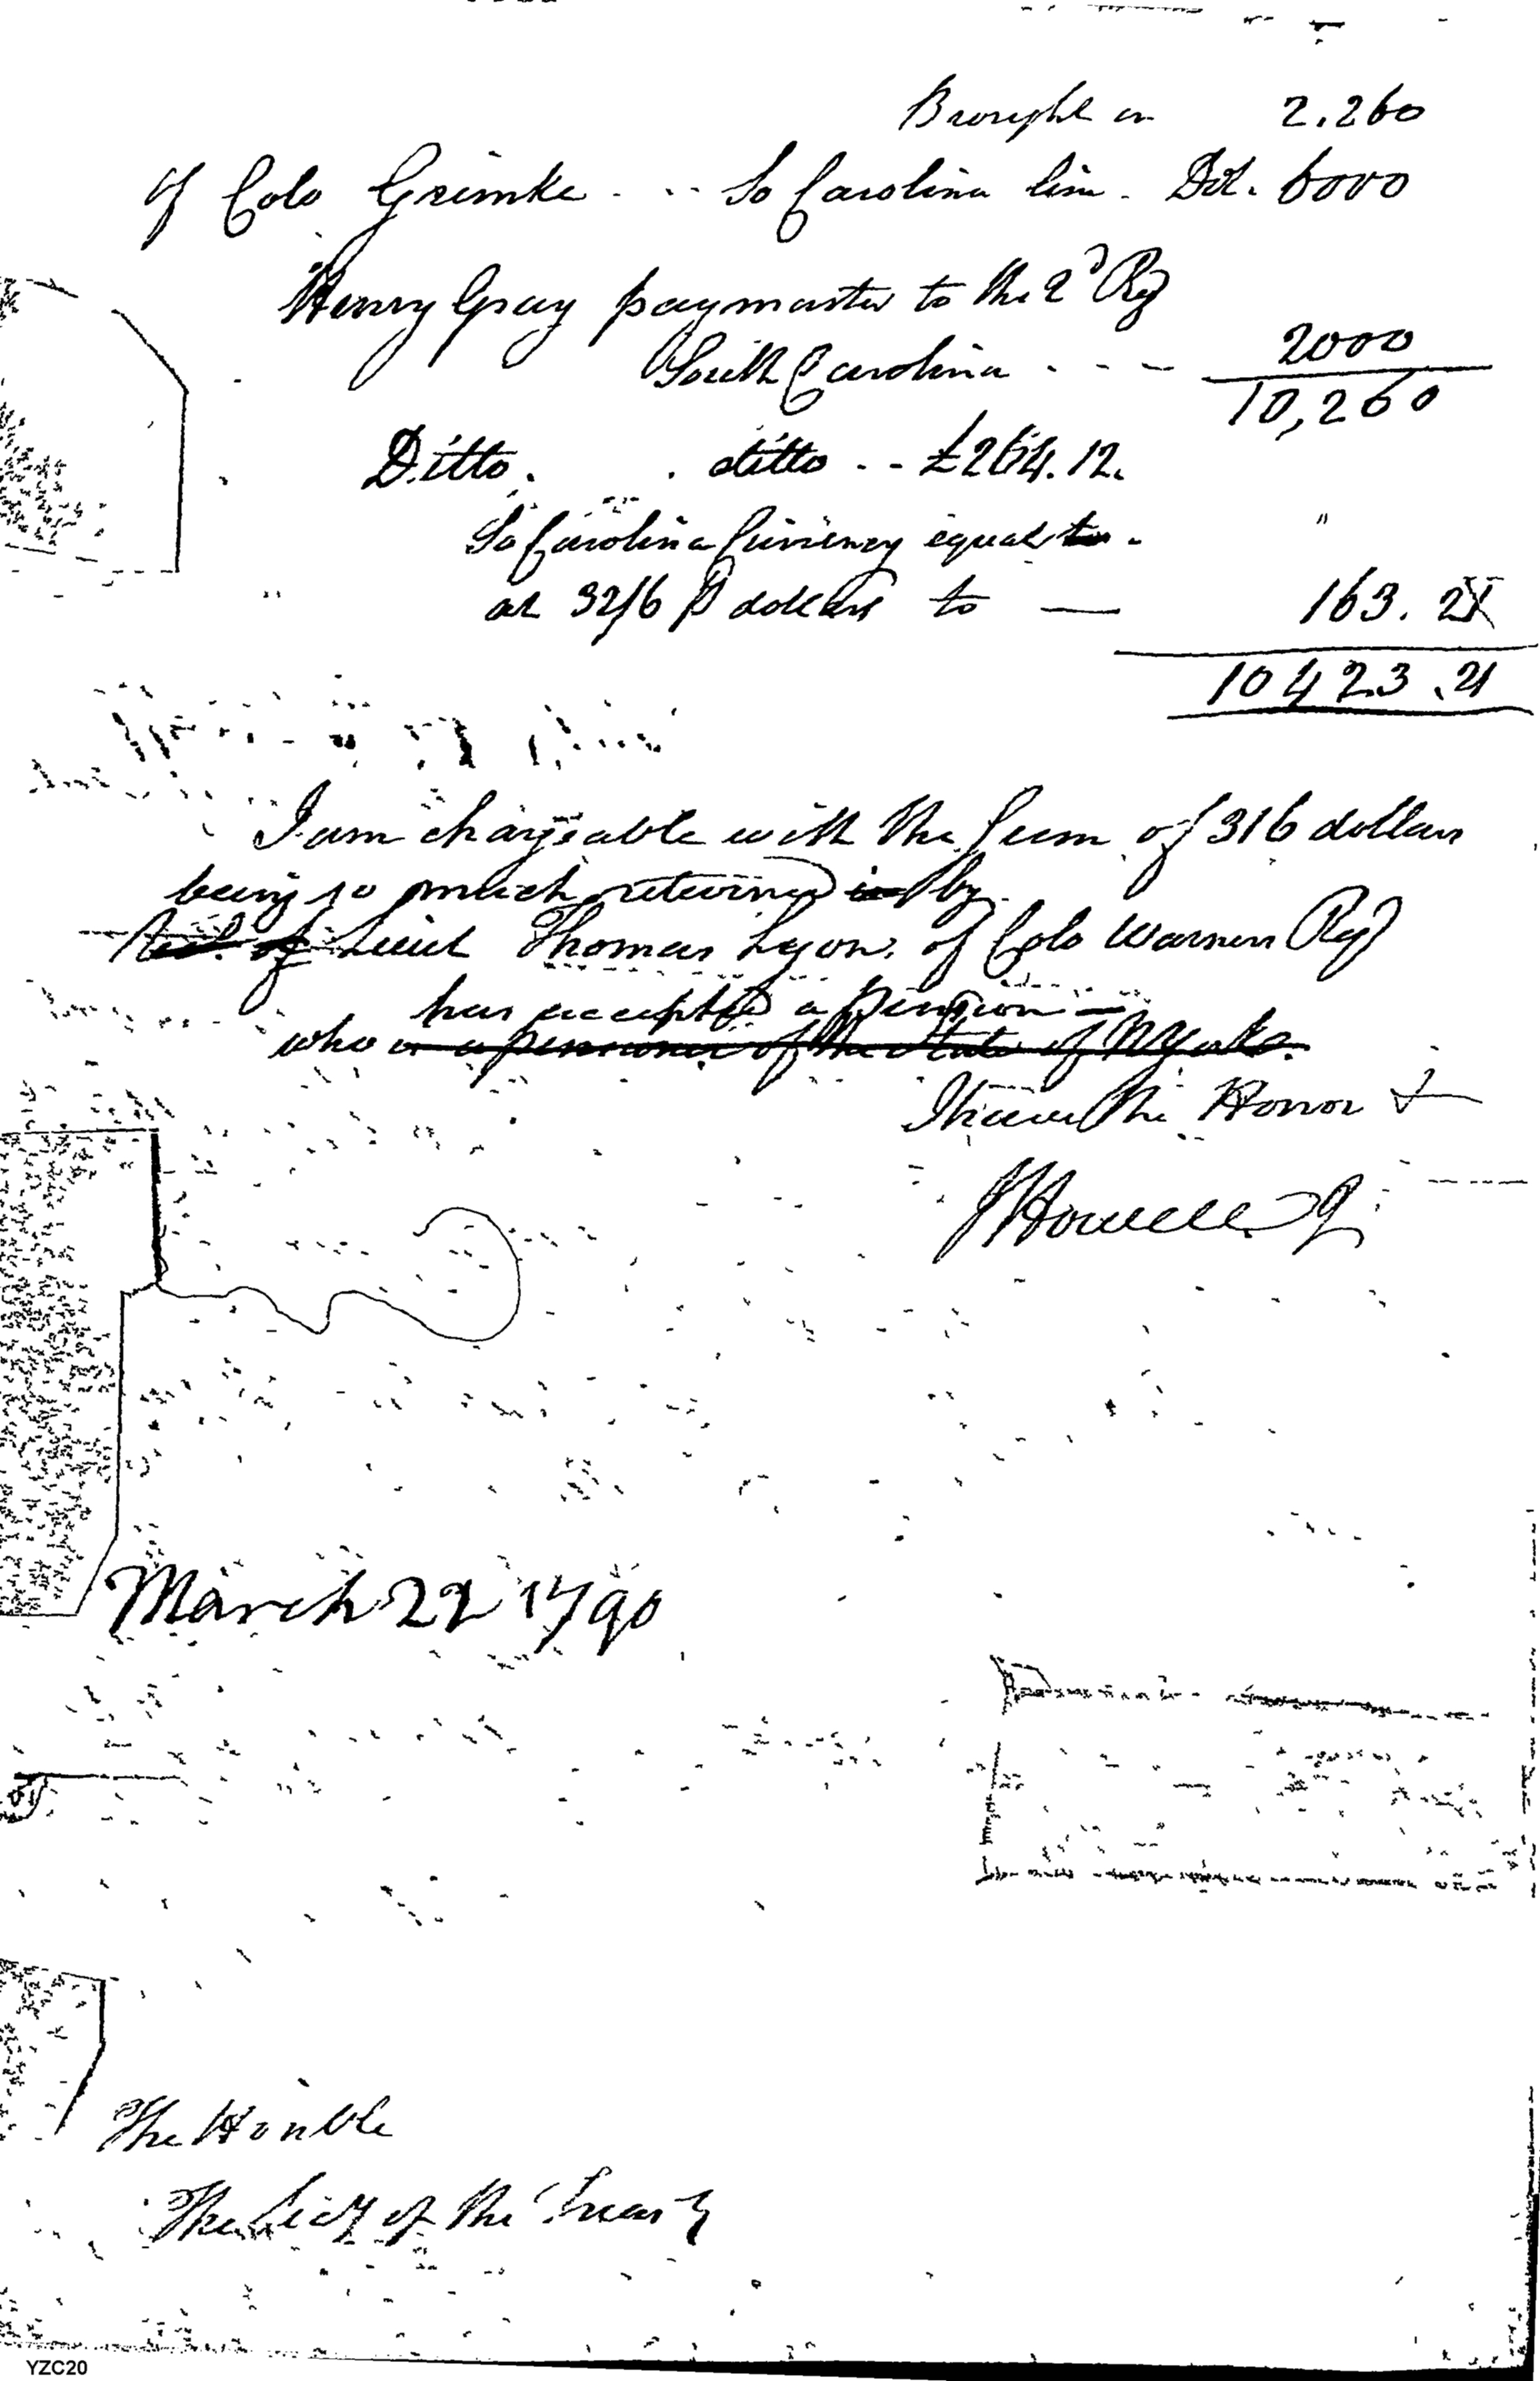 Brought on 2.260
of Colo Grimke - - - So Carolina line - Dol. 6000
Henry Gray paymaster to the 2d Reg
South Carolina - - - 2000
10,260
Ditto. . ditto - - £264.12.
So Carolina Currency equal to - "
at 32/6 P dollars to — 163. 2
10423.21
I am chargeable with the Sum of 316 dollars
being so much returned in by
of Lieut Thomas Lyon. of Colo Warners Regt
has accepted a Pension —
who is a pensioner of the State of NYorke.
I have the Honor &
J Howell J
March 22 1790
The Honble
The Secy of the Treasy
YZC20